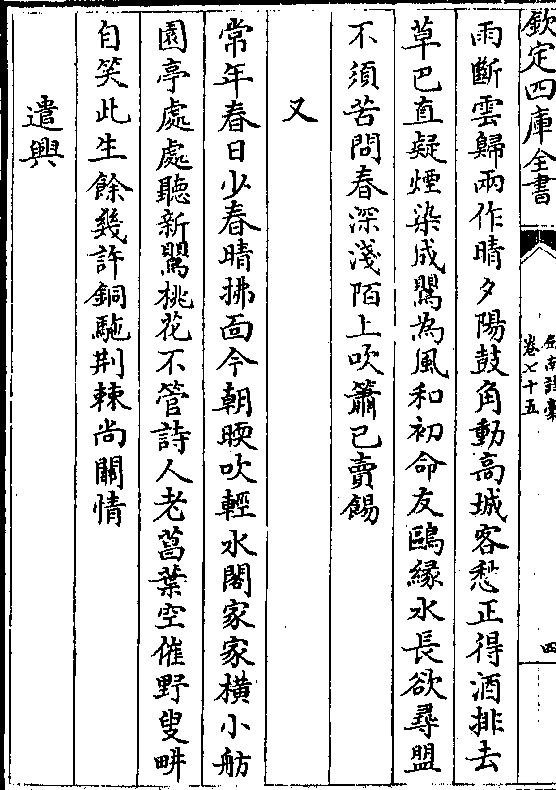 欽定四庫全書
劍南詩稾
卷七十五
四
雨斷雲歸兩作晴夕陽鼓角動高城客愁正得酒排去
草色直疑煙染成鸎為風和初命友鷗緣水長欲尋盟
不須苦問春深淺陌上吹簫已賣餳
又
常年春日少春晴拂面今朝暖吹輕水閣家家橫小舫
園亭處處聽新鸎桃花不管詩人老菖葉空催野叟畊
自笑此生餘幾許銅駞荆棘尚關情
遣興